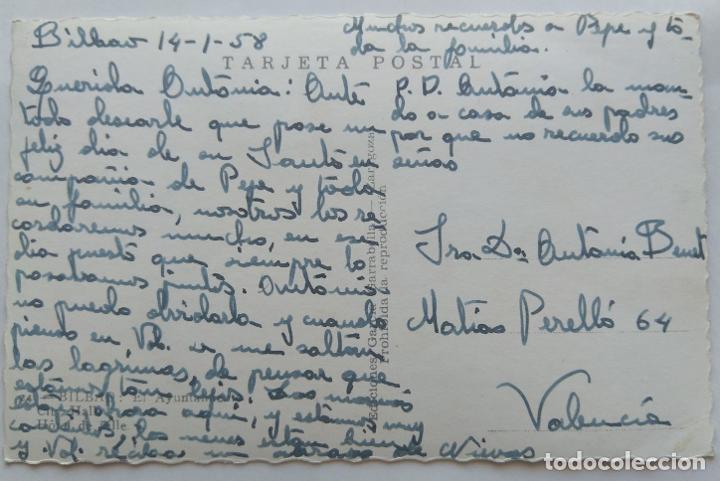 Bilbao 14-1-58
Muchos recuerdos a Pepe y to-
da la familia.
TARJETA POSTAL
Querida Antonia: Ante
todo desearle que pase un
feliz dia de su Santo en
compañia de Pepe y toda
su familia, nosotros los re
cordaremos mucho, en ese
dia puesto que siempre lo
pasabamos juntos. Antonia
no puedo olvidarla y cuando
pienso en Vd. se me saltan
las lagrimas, de pensar que
estamos tan lejos. Los
está ahora aqui, y estamos muy
contentos los nenes estan bien
y Vd. reciba un abrazo de Nieves
P.D. Antonia la man-
do a casa de sus padres
por que no recuerdo sus
señas
Sra Dña Antonia Benet
Matias Perelló 64
Valencia
Ediciones García Garrabella - Zaragoza
Prohibida la reproducción
BILBAO: El Ayuntamiento
City Hall
Hôtel de Ville
todocoleccion.net